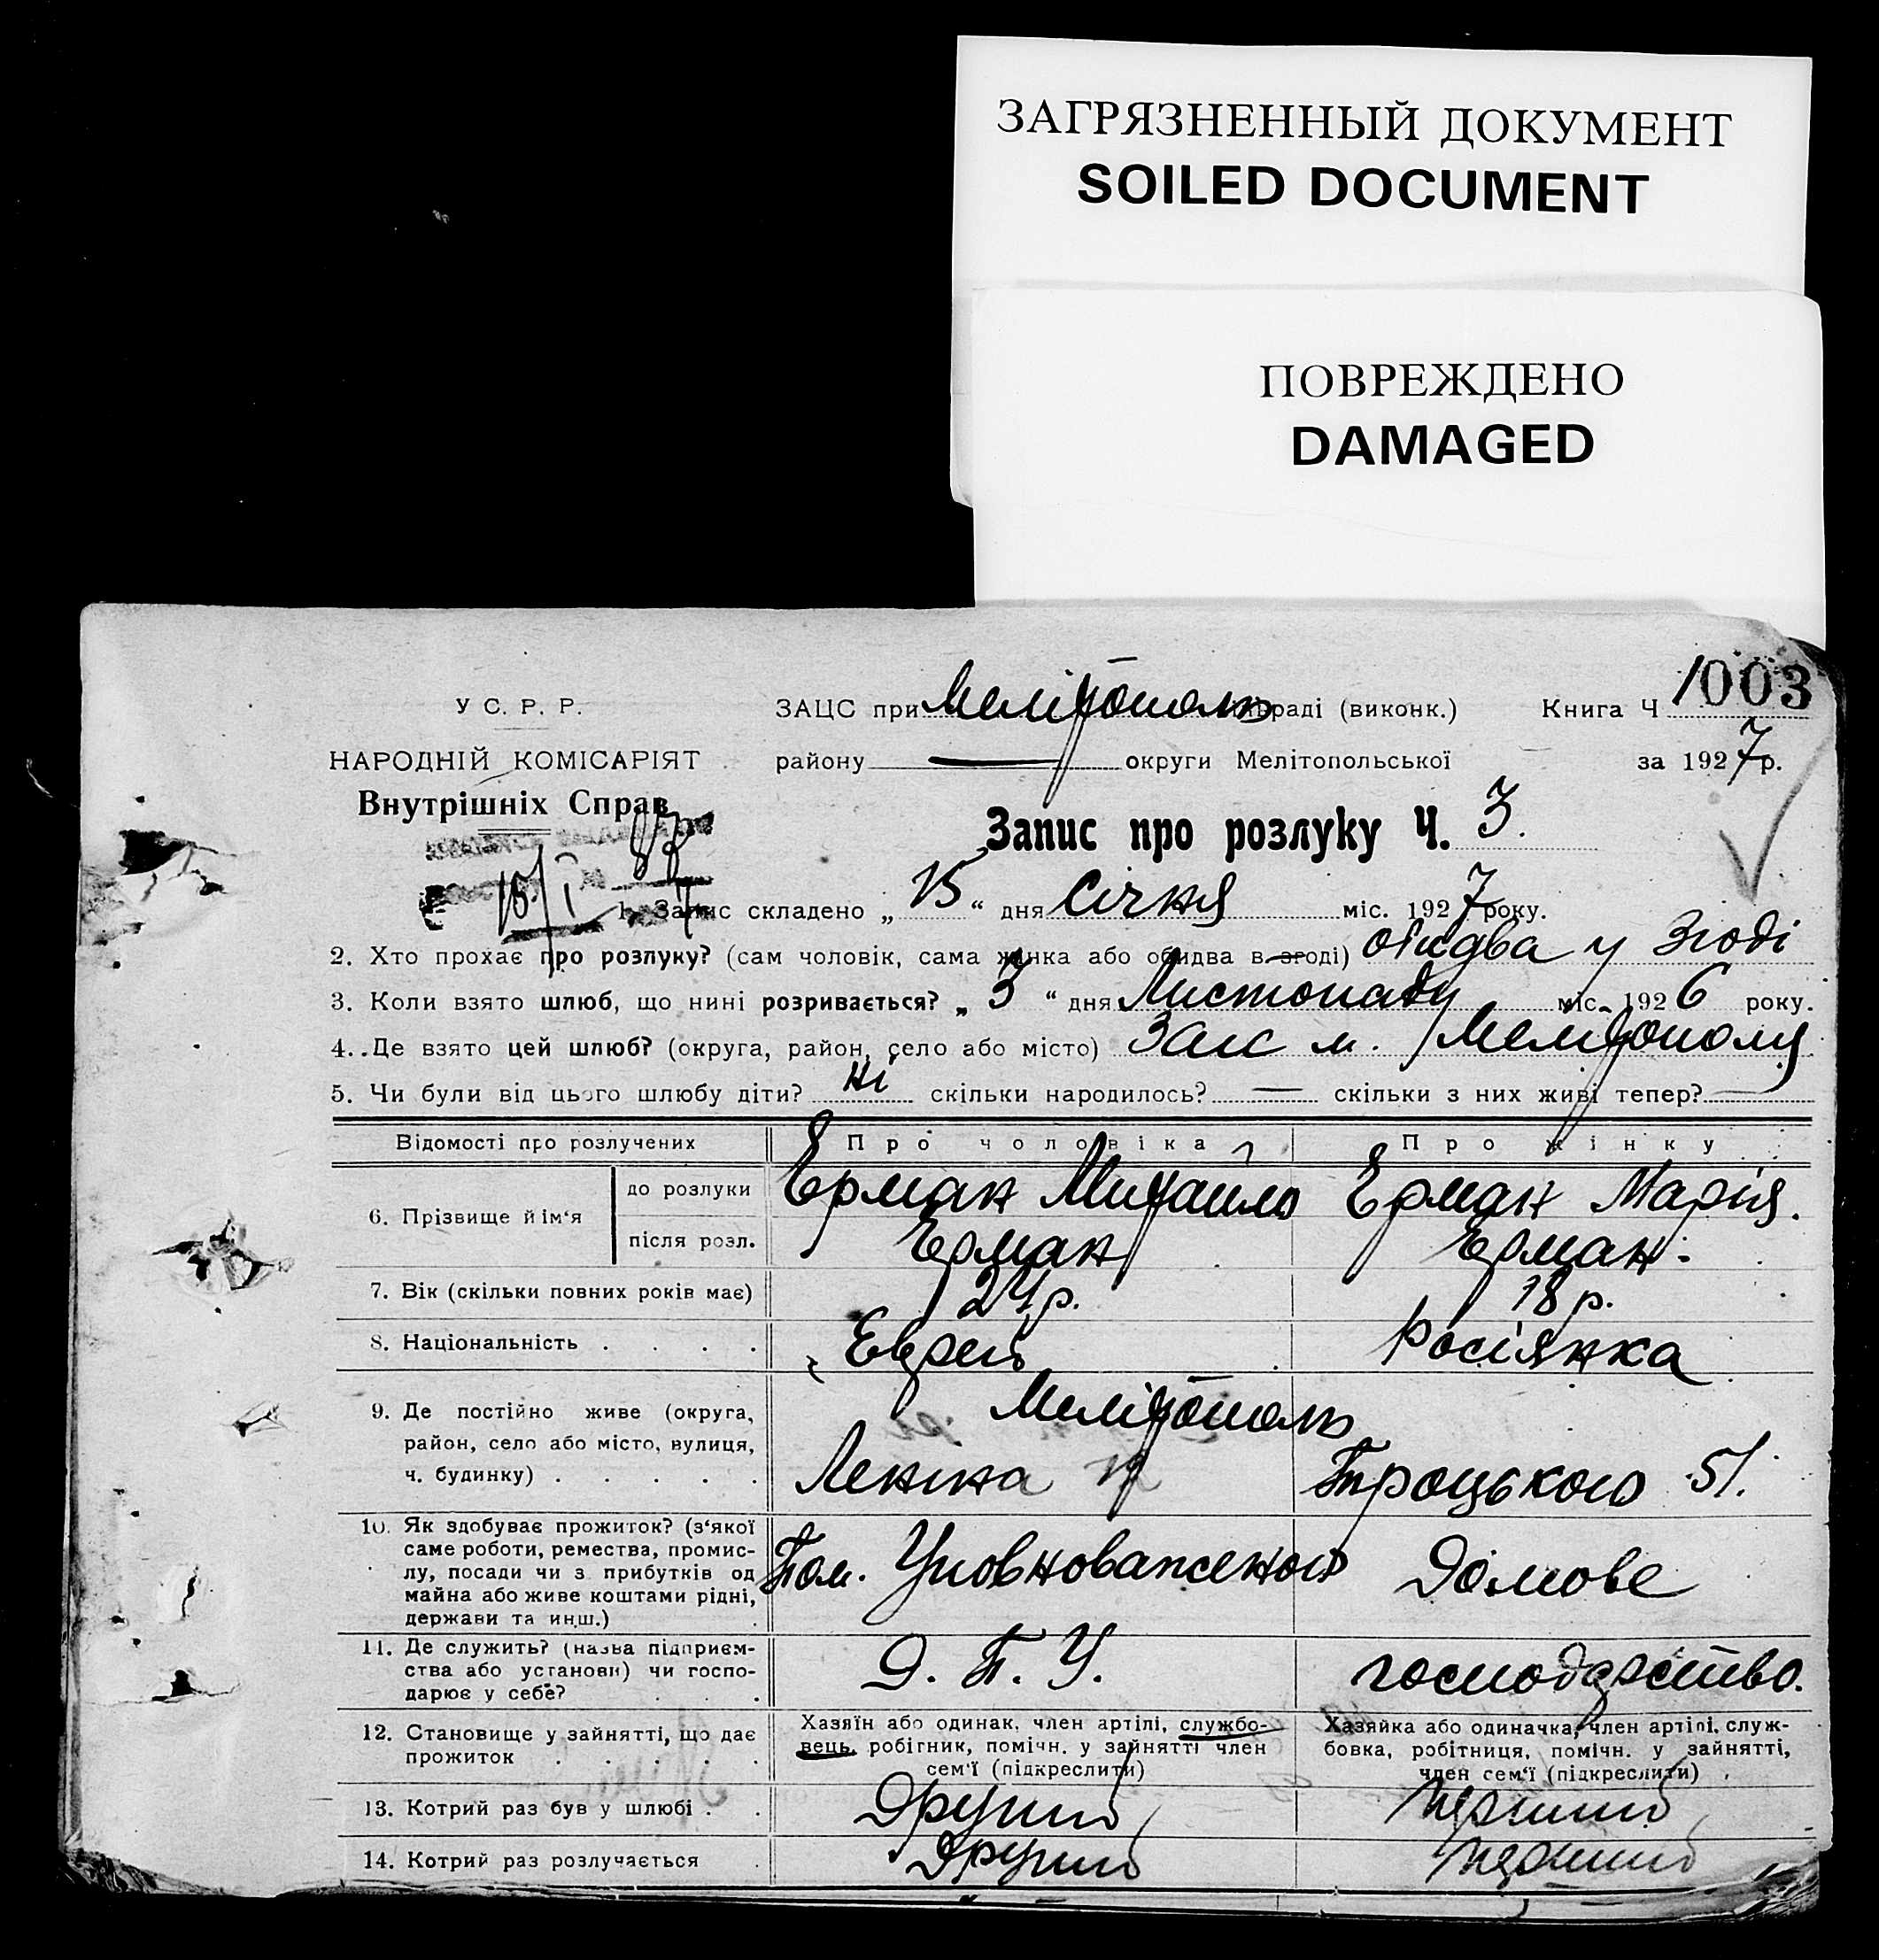 ЗАГРЯЗНЕННЫЙ ДОКУМЕНТ
SOILED DOCUMENT
ПОВРЕЖДЕНО
DAMAGED
У С. Р. Р.
ЗАЦС при Мелітополь міськраді (виконк.)
Книга Ч 1003
НАРОДНІЙ КОМІСАРІЯТ
району — округи Мелітопольської
за 1927 р.
Внутрішніх Справ
Запис про розлуку Ч. 3.
15/I
1. Запис складено „ 15 “ дня Січня міс. 1927 року.
2. Хто прохає про розлуку? (сам чоловік, сама жінка або обидва в згоді) обидва у згоді
3. Коли взято шлюб, що нині розривається? „ 3 “ дня Листопаду міс. 1926 року.
4. Де взято цей шлюб? (округа, район, село або місто) Загс м. Мелітополя
5. Чи були від цього шлюбу діти? ні скільки народилось? — скільки з них живі тепер? —
Відомості про розлучених
Про чоловіка
Про жінку
6. Прізвище й ім‘я
до розлуки
Ерман Михайло
Ерман Марія.
після розл.
Ерман
Ерман.
7. Вік (скільки повних років має)
24 р.
18 р.
8. Національність . . . .
Еврей
Росіянка
9. Де постійно живе (округа,
район, село або місто, вулиця,
ч. будинку) . . . . .
Мелітополь
Леніна
Троцького 51.
10. Як здобуває прожиток? (з‘якої
саме роботи, ремества, промис-
лу, посади чи з прибутків од
майна або живе коштами рідні,
держави та инш.) .
Пом. Уповноваженого
Домове
11. Де служить? (назва підприєм-
ства або установи) чи госпо-
дарює у себе? . . .
Д. П. У.
господарство.
12. Становище у зайнятті, що дає
прожиток . . . . .
Хазяїн або одинак, член артілі, службо-
вець, робігник, помічн. у зайнятті член
сем‘ї (підкреслити)
Хазяйка або одиначка, член артілі, служ-
бовка, робітниця, помічн. у зайнятті,
член сем‘ї (підкреслити)
13. Котрий раз був у шлюбі . .
Другий
перший
14. Котрий раз розлучається .
Другий
перший